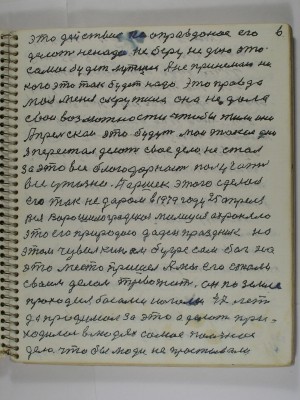 6
это действие не оправданое его
делать ненада не Веру, не даю это
самое будет мутция А не принимаю на
кого это так будет нада. Это правда
моя меня скрутила она не дала
свои возможности чтобы жили они
Апрельские это будут мои эжские дни
Я перестал делать свое дело не стал
за это все благодарность получать
все утрачено. Паршек этого сделал
его так не даром в 1979 году 25 апреля
Вся Ворошиловградская милиция окружила
это его природою даден праздник на
этом чувилкином бугре сам бог на
это место пришел А мы его стали
своим делом тревожить, он по земле
проходил босыми ногами 47 лет
да продумал за это а делать при-
ходился в людях самое полезное
дело. что бы люди не простывали